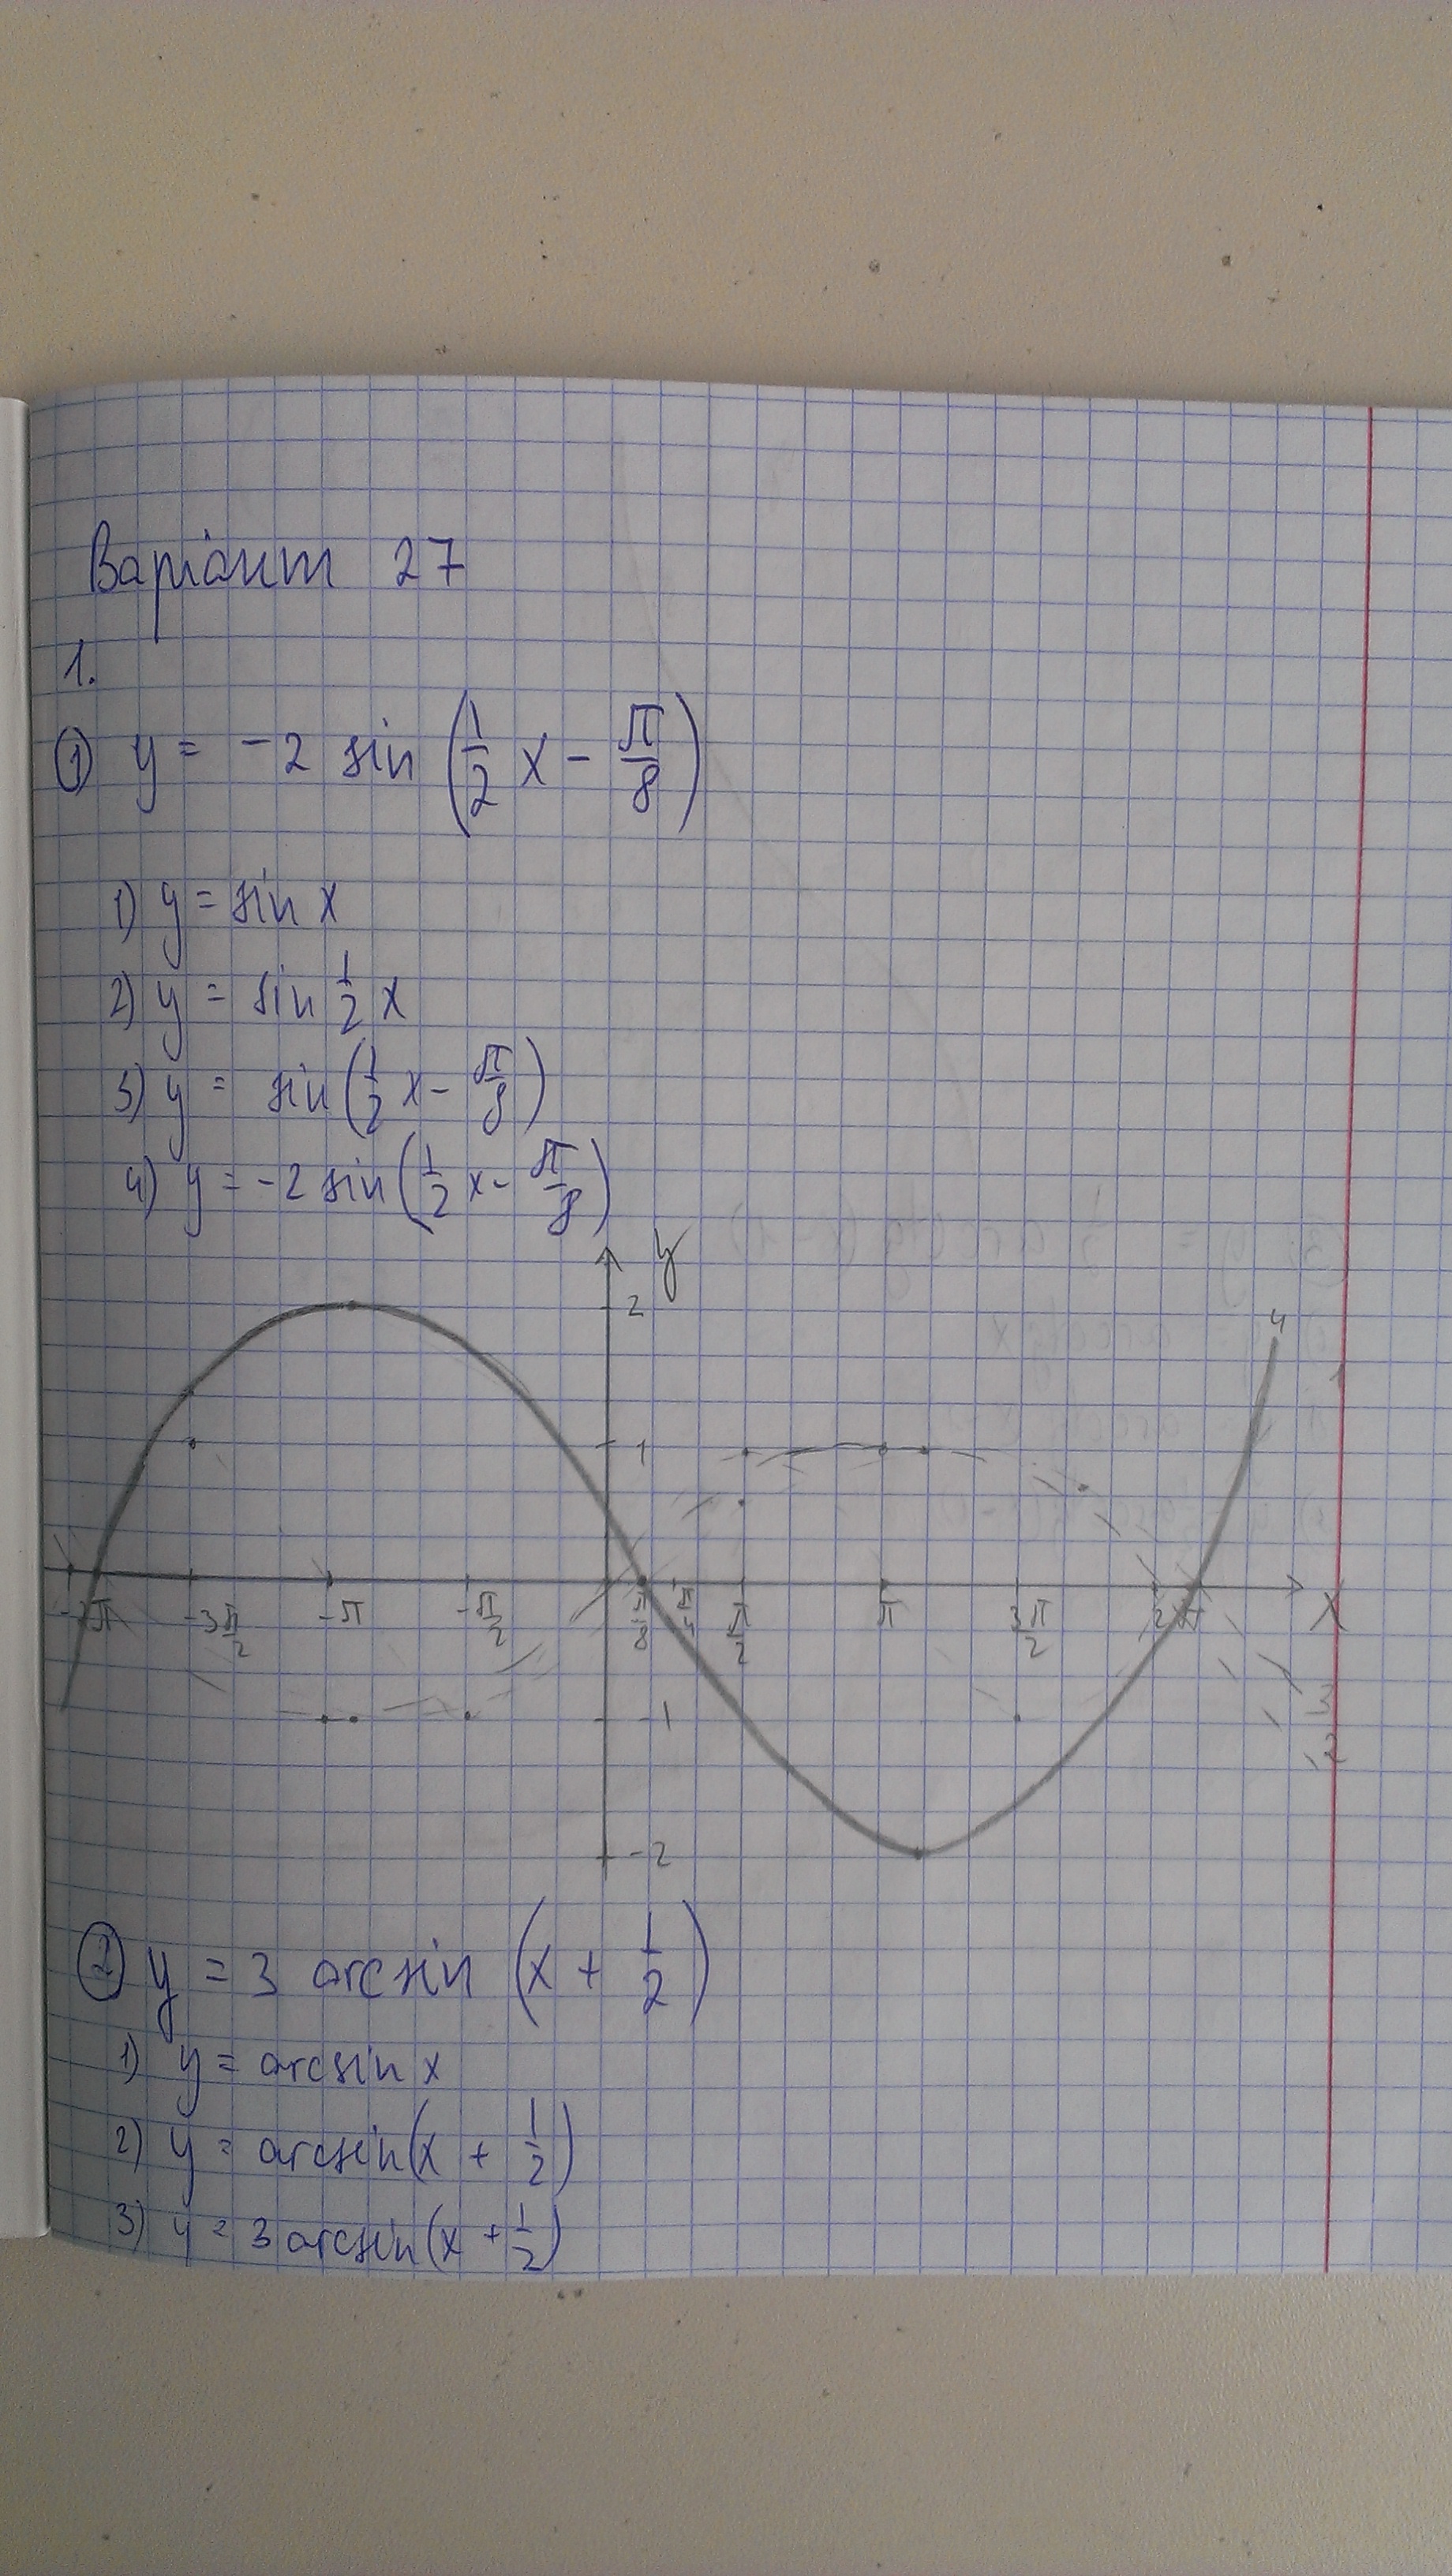 Варіант 27
1.
① y = -2 sin (1/2 x - π/8)
1) y = sin x
2) y = sin 1/2 x
3) y = sin (1/2 x - π/8)
4) y = -2 sin (1/2 x - π/8)
y
2
4
1
-2π -3π/2 -π -π/2 π/8 π/4 π/2 π 3π/2 2π X
-1
3
2
-2
② y = 3 arcsin (x + 1/2)
1) y = arcsin x
2) y = arcsin (x + 1/2)
3) y = 3 arcsin (x + 1/2)